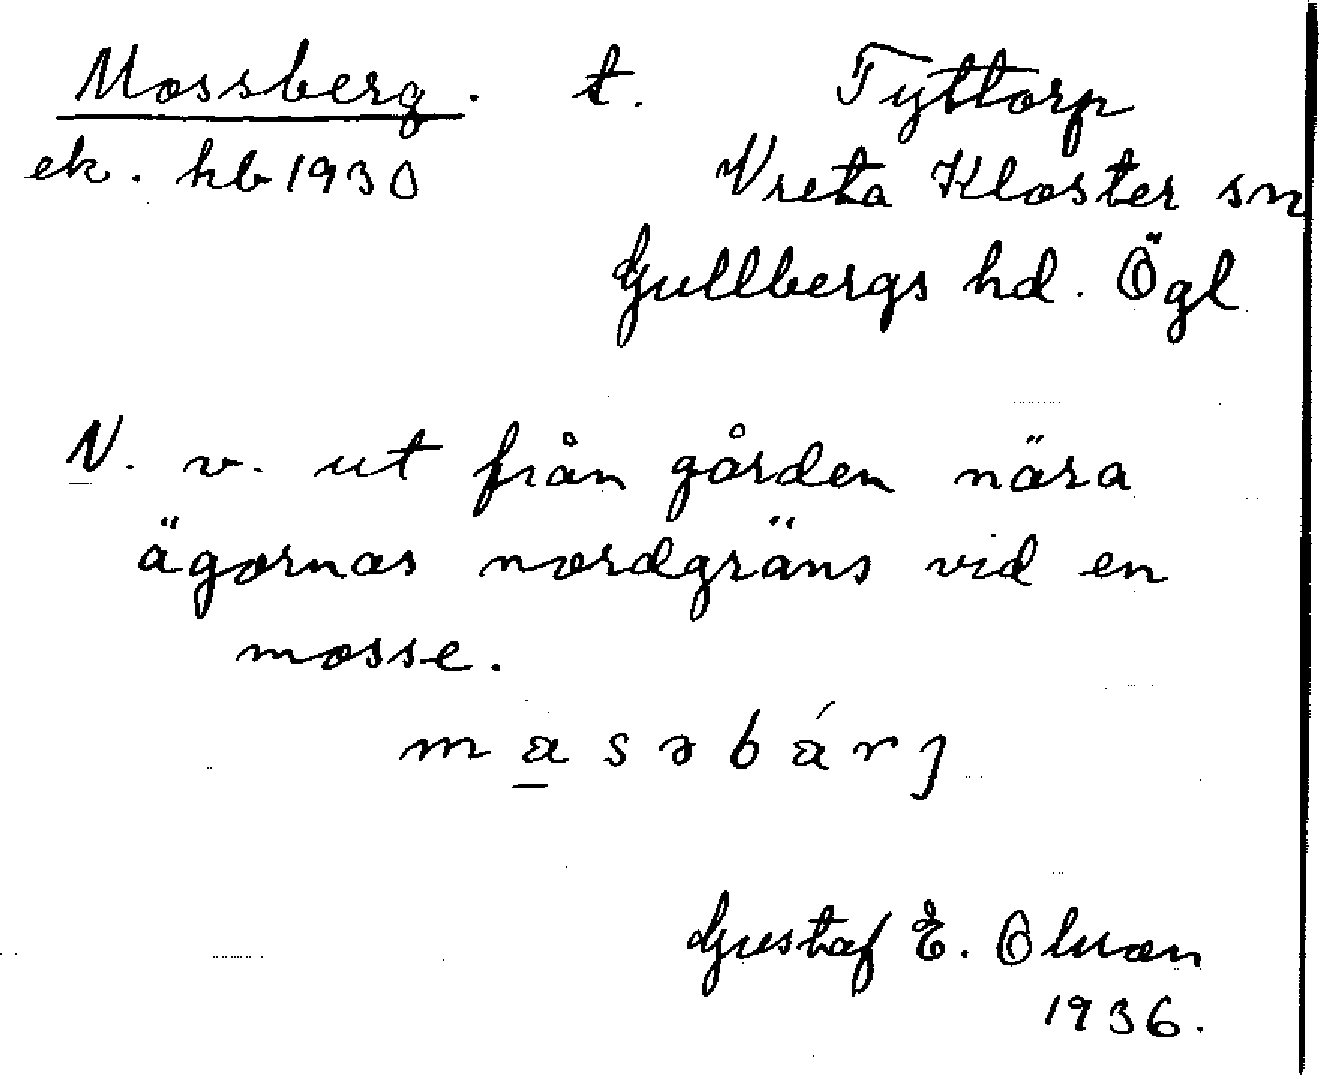 Mossberg. t. Tyttorp
ek. hb 1930 Vreta Kloster sn
Gullbergs hd. Ögl
N. v. ut från gården nära
ägornas nordgräns vid en
mosse.
masəbárj
Gustaf E. Olson
1936.